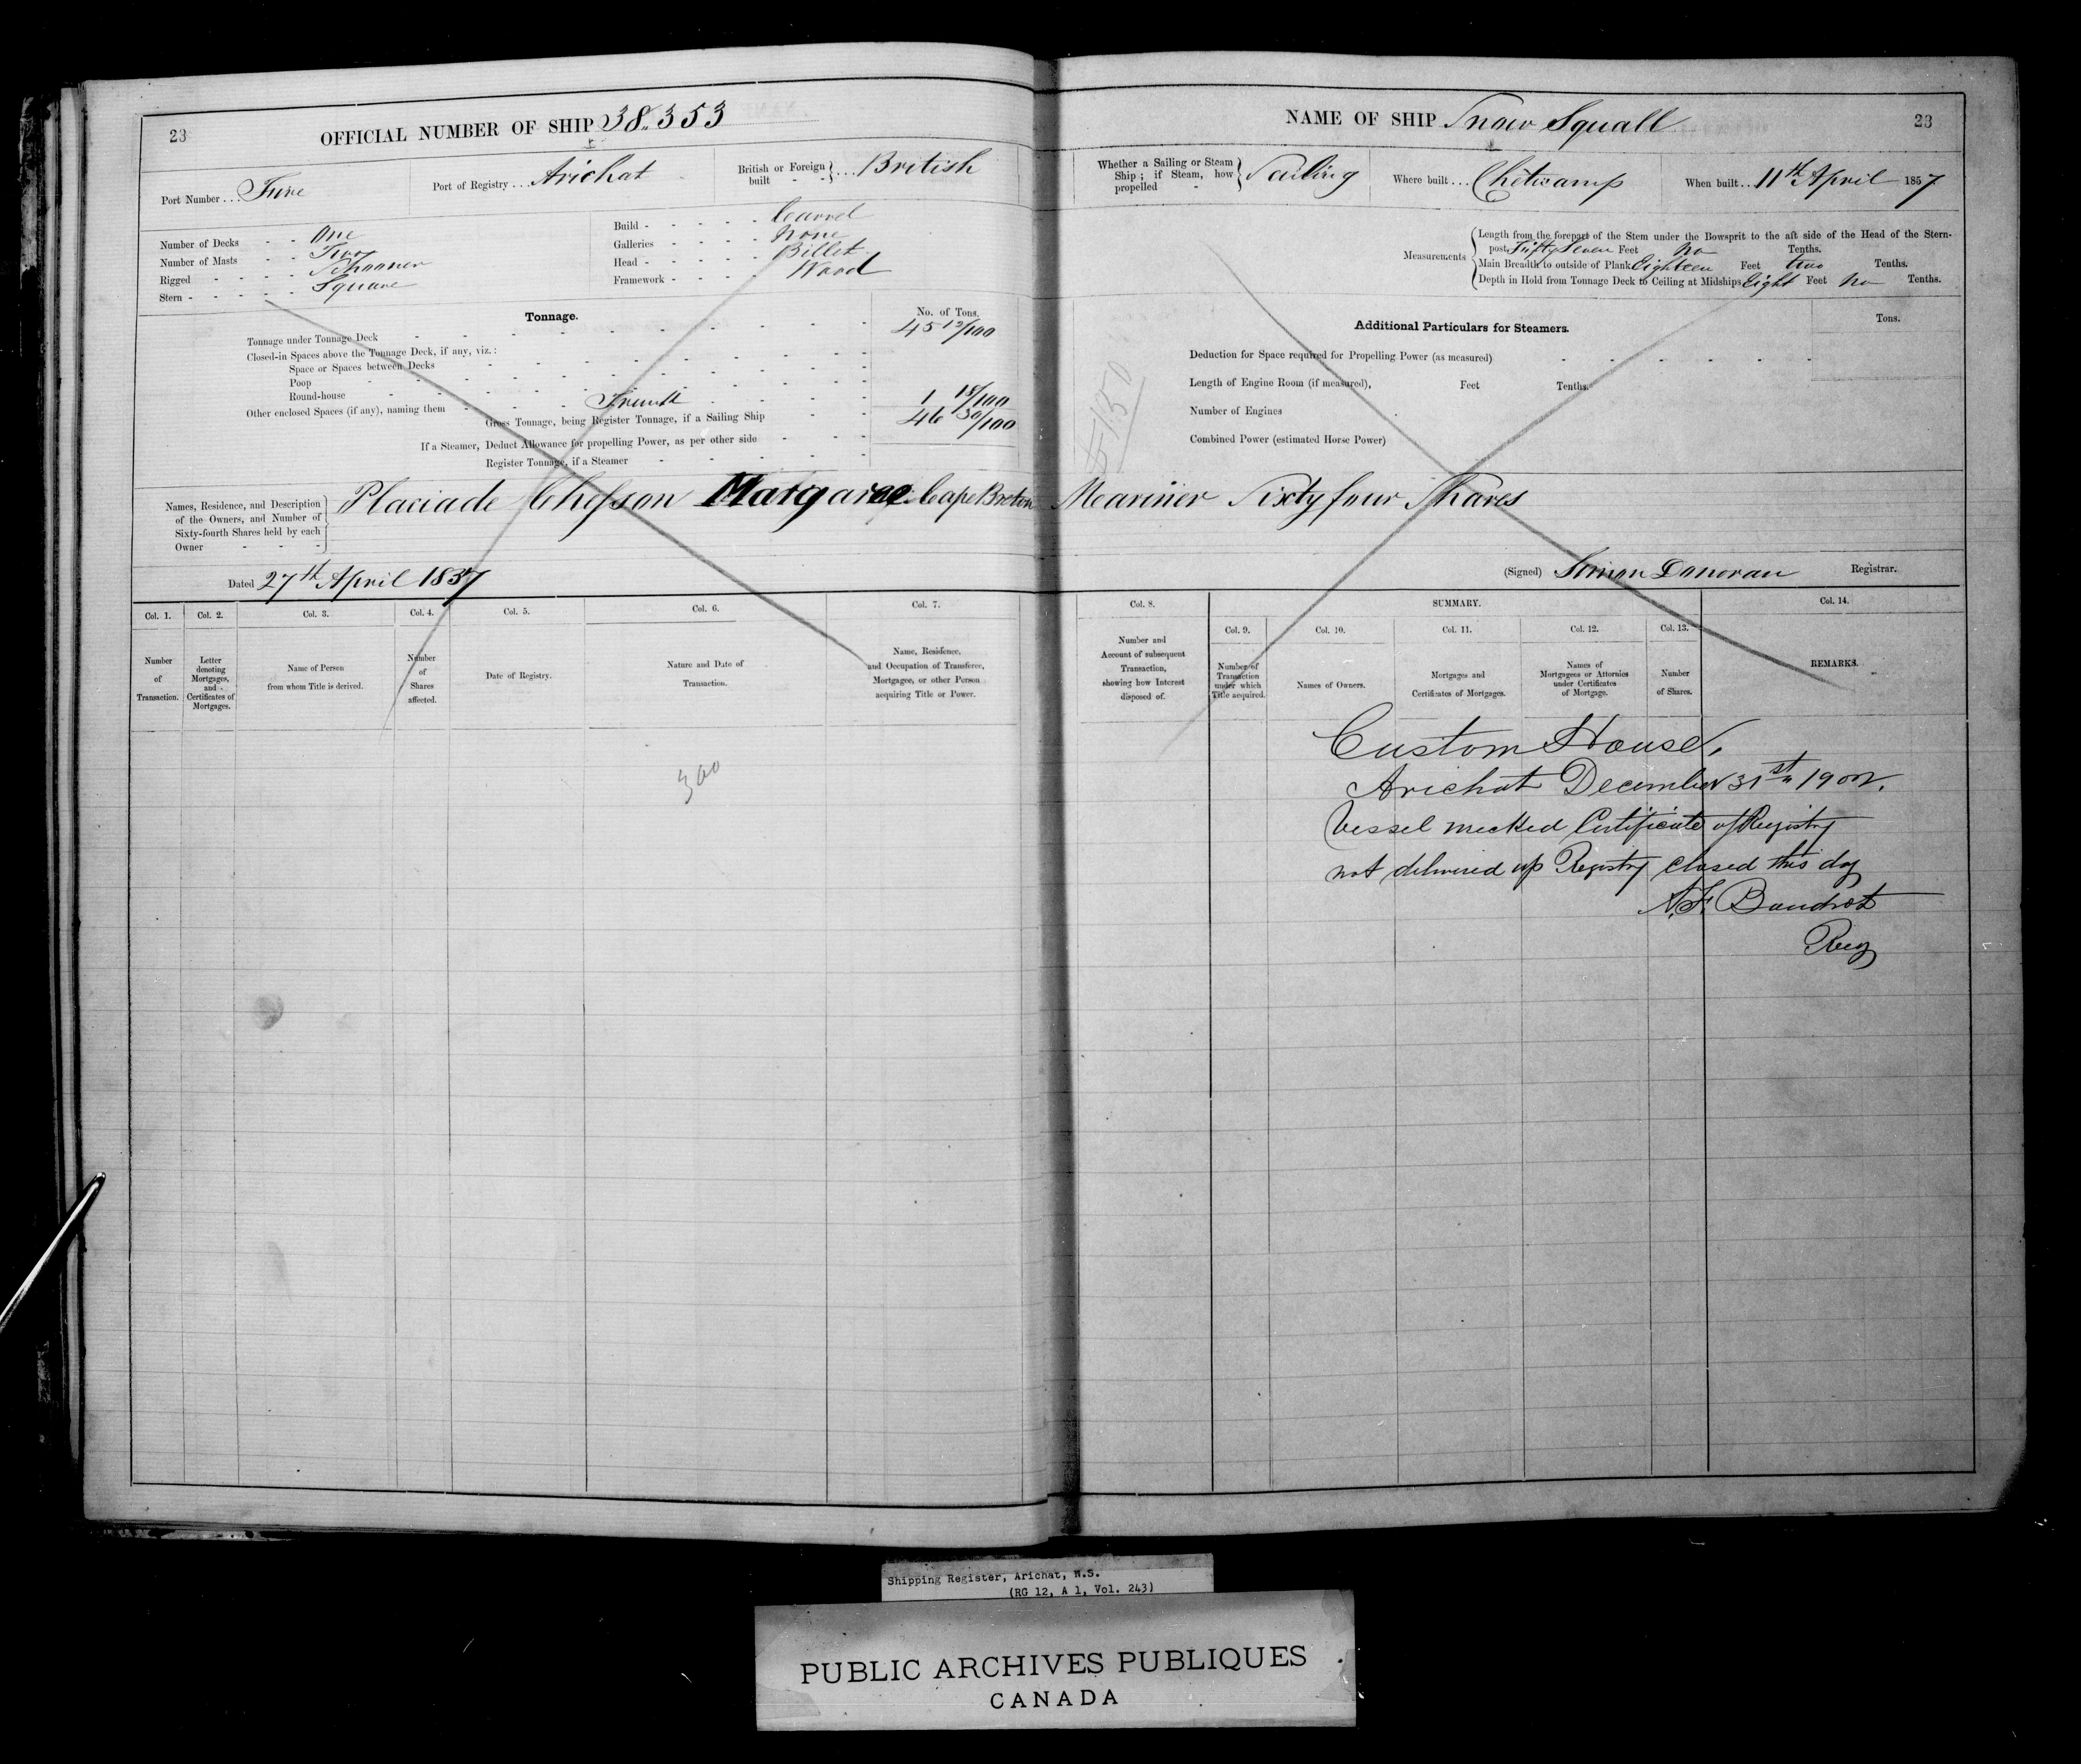 23
OFFICIAL NUMBER OF SHIP 38.353
Port Number... Five
Port of Registry... Arichat
British or Foreign built - - } ... British
Number of Decks - - One
Number of Masts - - Two
Rigged - - - - Schooner
Stern - - - - - Square
Build - - - - - Carvel
Galleries - - - - None
Head - - - - - Billet
Framework - - - - Wood
Tonnage.
No. of Tons.
Tonnage under Tonnage Deck 45 12/100
Closed-in Spaces above the Tonnage Deck, if any, viz.:
Space or Spaces between Decks
Poop
Round-house
Other enclosed Spaces (if any), naming them - - - Trunk 1 18/100
Gross Tonnage, being Register Tonnage, if a Sailing Ship 46 30/100
If a Steamer, Deduct Allowance for propelling Power, as per other side
Register Tonnage, if a Steamer
Names, Residence, and Description of the Owners, and Number of Sixty-fourth Shares held by each Owner - - -
Placiade Chesson Margaree Cape Breton
Dated 27th April 1857
Col. 1. Number of Transaction.
Col. 2. Letter denoting Mortgages, and Certificates of Mortgages.
Col. 3. Name of Person from whom Title is derived.
Col. 4. Number of Shares affected.
Col. 5. Date of Registry.
Col. 6. Nature and Date of Transaction.
Col. 7. Name, Residence, and Occupation of Transferee, Mortgagee, or other Person acquiring Title or Power.
300
NAME OF SHIP Snow Squall
23
Whether a Sailing or Steam Ship; if Steam, how propelled - } Sailing
Where built... Chiticamp
When built... 11th April 1857
Measurements
Length from the forepart of the Stem under the Bowsprit to the aft side of the Head of the Stern-
post Fifty Seven Feet No Tenths.
Main Breadth to outside of Plank Eighteen Feet two Tenths.
Depth in Hold from Tonnage Deck to Ceiling at Midships Eight Feet No Tenths.
Additional Particulars for Steamers.
Tons.
Deduction for Space required for Propelling Power (as measured)
Length of Engine Room (if measured), Feet Tenths.
Number of Engines
Combined Power (estimated Horse Power)
Meariner Sixty four Shares
(Signed) Simon Donovan Registrar.
Col. 8. Number and Account of subsequent Transaction, showing how Interest disposed of.
SUMMARY.
Col. 9. Number of Transaction under which Title acquired.
Col. 10. Names of Owners.
Col. 11. Mortgages and Certificates of Mortgages.
Col. 12. Names of Mortgagees or Attornies under Certificates of Mortgage.
Col. 13. Number of Shares.
Col. 14. REMARKS.
Custom House,
Arichat December 31st 1902.
Vessel wrecked Certificate of Registry
not delivered up Registry closed this day
Boudrot
Reg
Shipping Register, Arichat, N.S.
(RG 12, A 1, Vol. 243)
PUBLIC ARCHIVES PUBLIQUES
CANADA